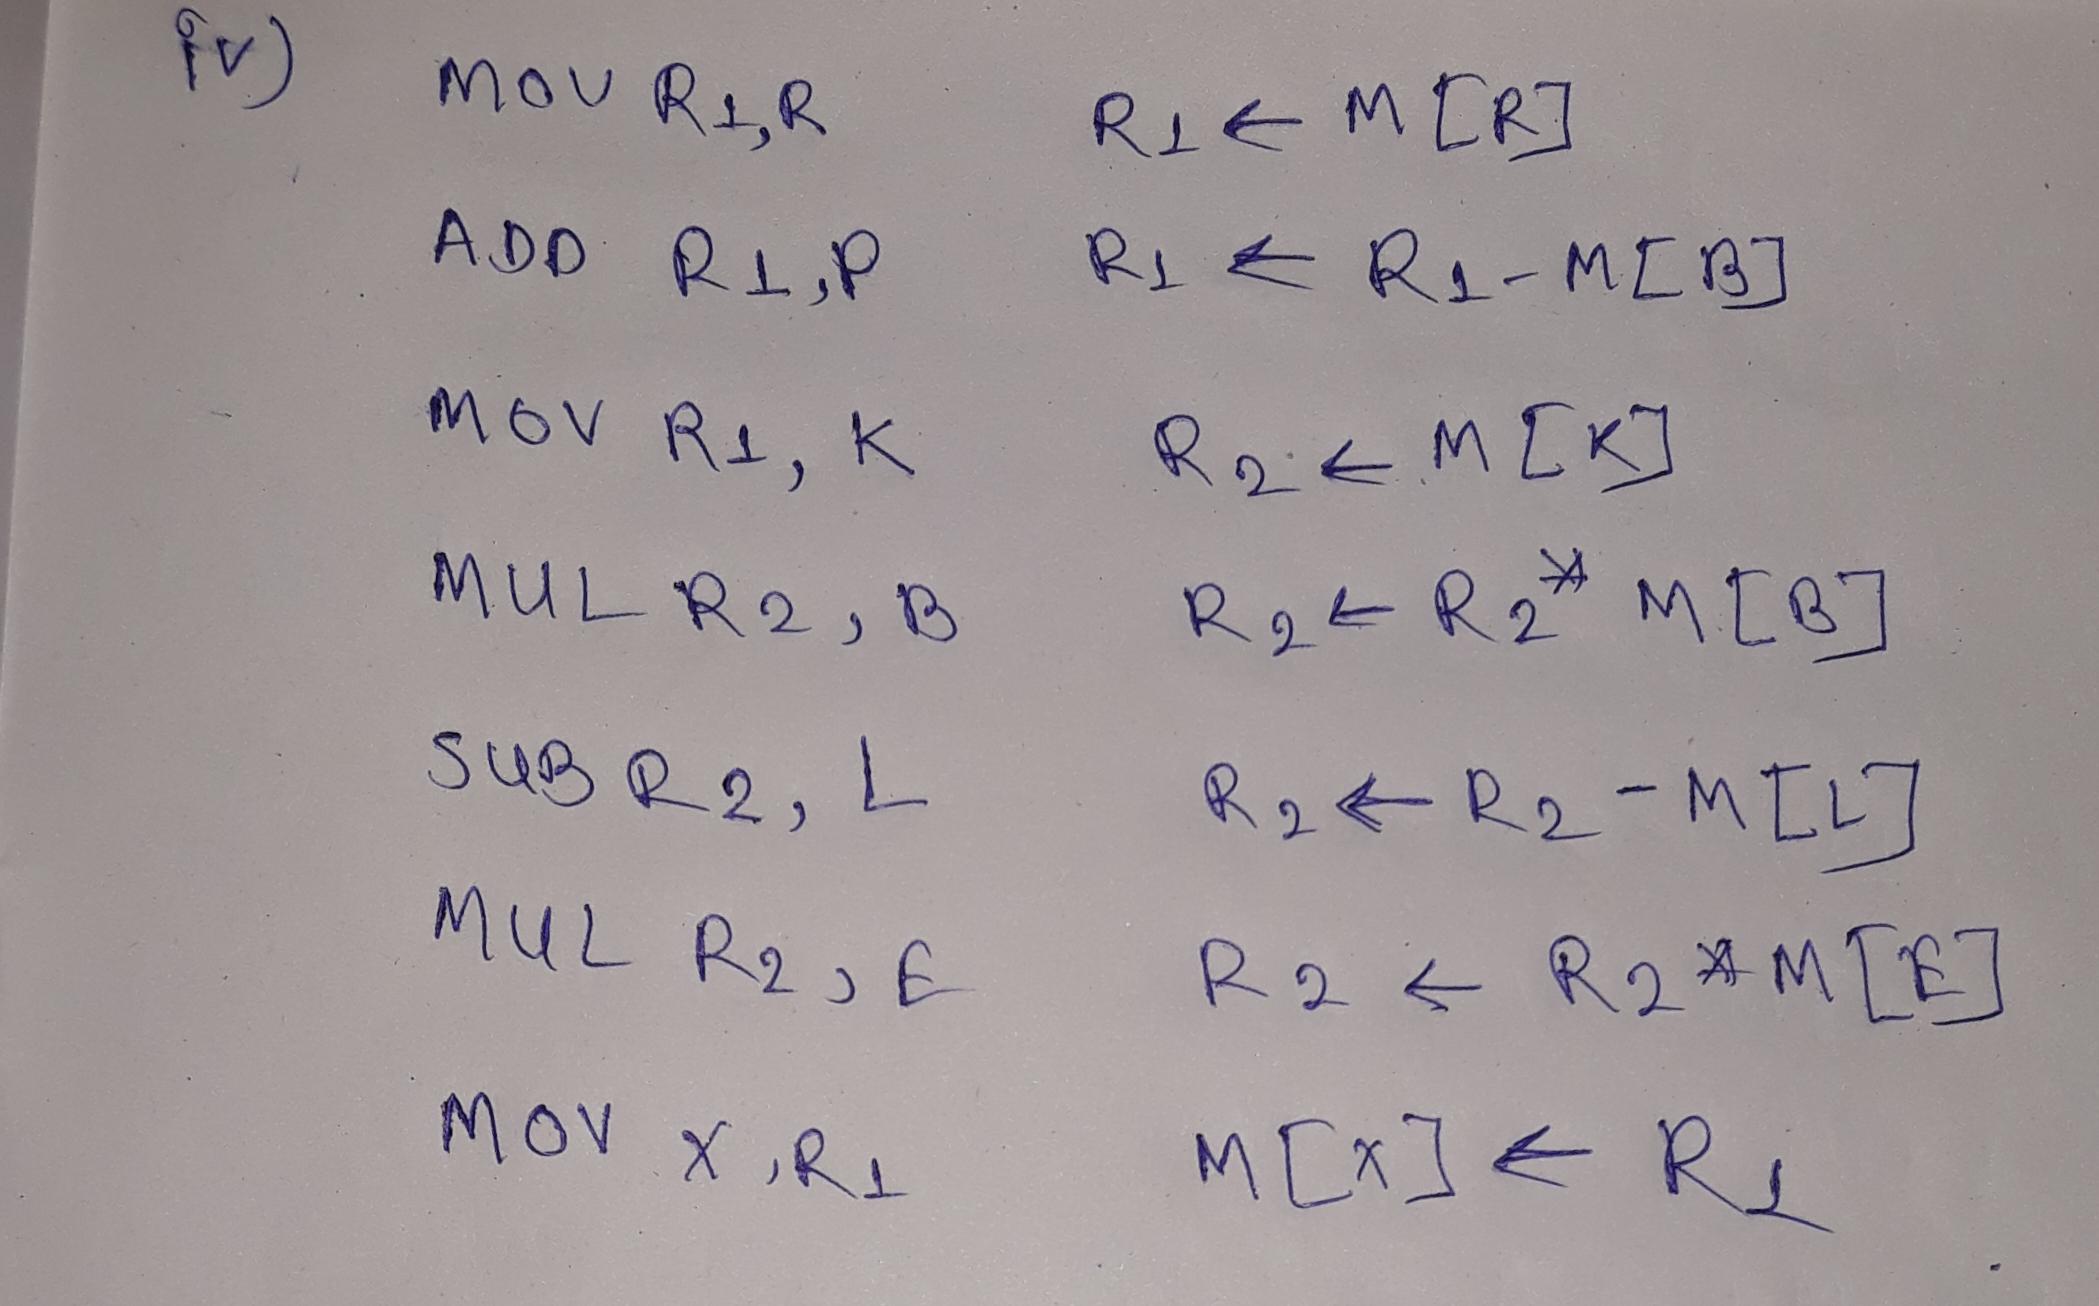 iv) MOV R1,R R1 ← M[R]
ADD R1,P R1 ← R1-M[B]
MOV R1, K R2 ← M[K]
MUL R2, B R2 ← R2* M[B]
SUB R2, L R2 ← R2-M[L]
MUL R2, E R2 ← R2*M[E]
MOV X,R1 M[X] ← R1